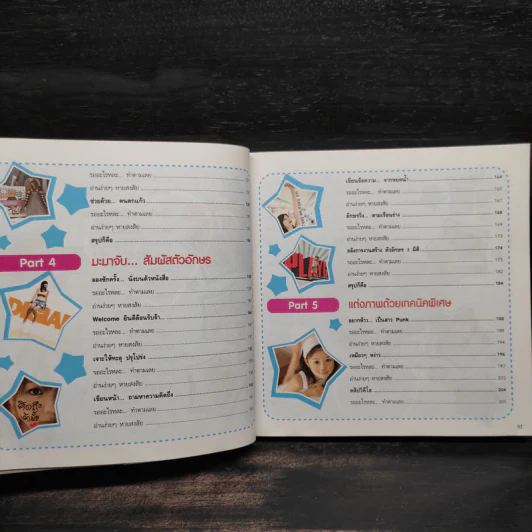 รออะไรหละ... ทำตามเลย
อ่านง่ายๆ หายสงสัย
ช่วยด้วย... คนตกแก้ว
รออะไรหละ... ทำตามเลย
อ่านง่ายๆ หายสงสัย
สรุปก็คือ
Part 4
มะมาจับ... สัมผัสตัวอักษร
ลองซักครั้ง... นั่งบนตัวหนังสือ
รออะไรหละ... ทำตามเลย
อ่านง่ายๆ หายสงสัย
Welcome ยินดีต้อนรับจ้า...
รออะไรหละ... ทำตามเลย
อ่านง่ายๆ หายสงสัย
เจาะให้ทะลุ ปรุโปร่ง
รออะไรหละ... ทำตามเลย
อ่านง่ายๆ หายสงสัย
เขียนหน้า... ถามหาความคิดถึง
รออะไรหละ... ทำตามเลย
อ่านง่ายๆ หายสงสัย
เขียนข้อความ... จากหยดน้ำ 164
รออะไรหละ... ทำตามเลย
อ่านง่ายๆ หายสงสัย
อักษรวิ่ง... ตามเรือนร่าง 168
รออะไรหละ... ทำตามเลย
อ่านง่ายๆ หายสงสัย 173
อลังการงานสร้าง ตัวอักษร 3 มิติ 174
รออะไรหละ... ทำตามเลย
อ่านง่ายๆ หายสงสัย
สรุปก็คือ 184
PLAY
Part 5
แต่งภาพด้วยเทคนิคพิเศษ
อยากซ่าๆ... เป็นสาว Punk
รออะไรหละ... ทำตามเลย
อ่านง่ายๆ หายสงสัย
รออะไรหละ... ทำตามเลย
อ่านง่ายๆ หายสงสัย
รออะไรหละ... ทำตามเลย
อ่านง่ายๆ หายสงสัย